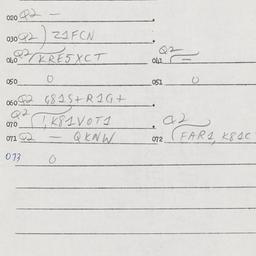 020 Q2 —
030 Q2 ) Z1FCN
040 Q2 KRE5XCT 041 Q2 —
050 0 051 0
060 Q2 G81S+R1G+
070 Q2 1,K81V0T1
071 Q2 — QKNW 072 Q2 (FAR1, K81C
073 0